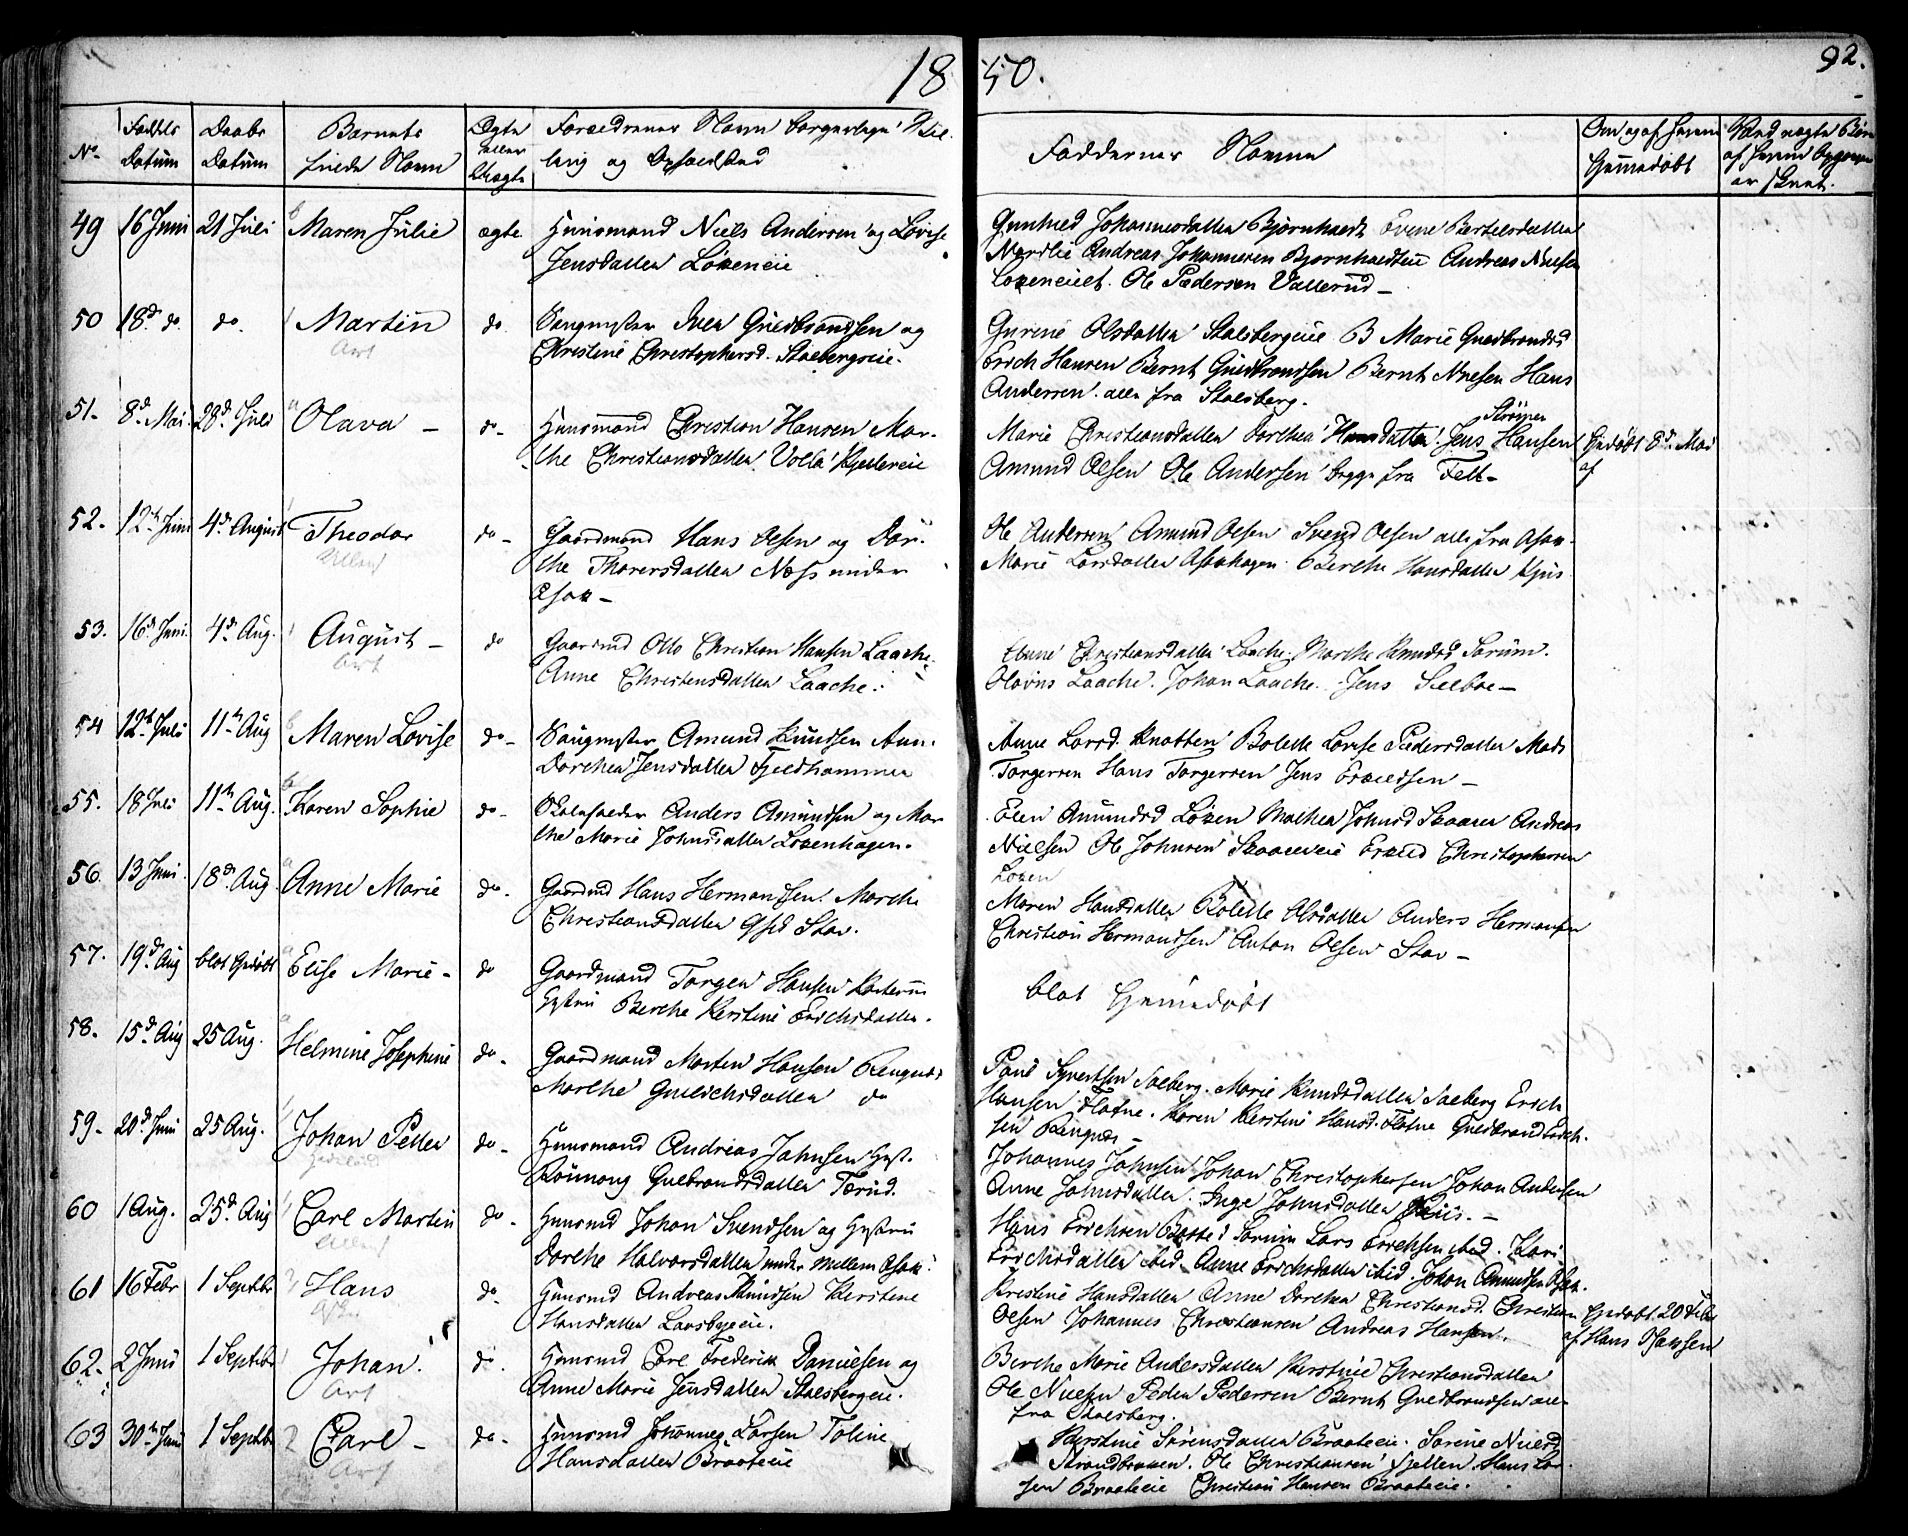 1850.
92.
No. Fødsels Datum Daabs Datum Barnets fulde Navn Ægte eller Uægte Forældrenes Navn borgerlige Stilling og Opholdsted
Faddernes Navne Om og af hvem hjemmedøbt
49 16 Juni 21 Juli Maren Julie ægte Huusmand Niels Andersen og Lovise
Jensdatter Løkeneie
Gunhild Johannesdatter Bjørnholdt Evene Bertelsdatter
Nordlie Andreas Johannesen Bjørnholdt Andreas Nielsen
Løkeneiet. Ole Pedersen Vallerud –
50 18d. do. do. Martin do. Iver Guldbrandsen og
Christine Christophersd. Stalsbergeie.
Gurine Olsdatter Stalsbergeie B Marie Guldbrandsd
Erich Hansen Bernt Guldbrandsen Bernt Nielsen Hans
Andersen alle fra Stalsberg.
51. 8d. Mai 28d. Juli Olava – do – Huusmand Christian Hansen Mar-
the Christiansdatter Volla Kjellereie
Marie Christiansdatter Dorthea Hansdatter Jens Hansen Strøiper
Amund Olsen Ole Andersen begge fra Felt –
Hjdøbt 8d. Mai
af
52. 12te Juni 4d. August Theodor do – Gaardmand Hans Olsen og Dor-
the Thorersdatter Næss under
Asak –
Ole Andersen Amund Olsen Svend Olsen alle fra Asak.
Marie Larsdatter Asakhagen Berthe Hansdatter Kjus
53. 16d. Juni 4d. Aug. August – do Gaardmd Otto Christian Hansen Laache
Anne Christensdatter Laache.
Anne Christiansdatter Laache. Marthe Knudsd Sørum.
Olavus Laache. Johan Laache. Jens
54 12te Juli 11te Aug Maren Lovise do – Amund Knudsen Ann.
Dorthea Jensdatter Fjeldhammer
Anne Larsd. Knatten Bolette Lovise Pedersdatter Mads
Torgersen Hans Torgersen Jens Erlandsen –
55. 18 Juli 11te Aug. Karen Sophie do – Skoleholder Anders Amundsen og Mar
the Marie Johnsdatter Løkenhagen.
Elen Amundsd Løken Mathea Johnsd Skaarer Andreas
Nielsen Ole Johnsen Skaarereie Erland Christophersen
Løken
56. 13 Juni. 18de Aug Anne Marie do. Gaardmd Hans Hermandsen Marthe
Christiansdatter Stav.
Maren Hansdatter Bolette Olsdatter Anders Hermansen
Christian Hermandsen Anton Olsen Stav –
57. 19d. Aug blot Hjdøbt Elise Marie – do Gaardmand Torger Hansen
Hustru Berthe Kerstine Erichsdatter.
blot Hjemmedøbt
58. 15d. Aug 25 Aug. Helmine Josephine do – Gaardmand Morten Hansen Ringnæs
Marthe Gulichsdatter do
Paul Syvertsen Solberg. Marie Knudsdatter Solberg Erich
Hansen Flatne. Karen Kerstine Hansd. Flatne Guldbrand Erich-
sen Ringnæs –
59. 20d. Juni 25 Aug. Johan Petter do – Huusmand Andreas Johnsen Hust.
Gulbrandsdatter Tærud.
Johannes Johnsen Johan Christophersen Johan Andersen
Anne Johnsdatter. Inge Johnsdatter Kiis. –
60 1 Aug. 25d. Aug Carl Martin do – Huusmd Johan Svendsen og Hustru
Dorthe Halvorsdatter under mellem Asak.
Hans Erichsen Sørum Lars Erichsen ibd. Kari
Erichsdatter ibd. Anne Erichsdatter ibid. Johan Amundsen Asak.
61 16 Febr 1 Septbr Hans do – Huusmd Andreas Knudsen Kerstine
Hansdatter Laasbyeie.
Kristine Hansdatter Anne Dorthea Christiansd. Christian
Olsen Johannes Christiansen Andreas Hansen.
Hjdøbt 20 Febr
af Hans Hanssen
62. 2 Juni 1 Septbr Johan do. Huusmd Carl Frederik Danielsen og
Anne Marie Jensdatter Stalsbergeie.
Berthe Marie Andersdatter Kerstine Christiansdatter
Ole Nielsen Peder Pedersen Bernt Guldbrandsen alle
fra Stalsberg.
63 30te Juni 1 Septbr Carl – do – Huusmd Johannes Larsen Toline
Hansdatter Braateeie
Kerstine Sørensdatter Braateeie. Sørine Nielsd
Strandbraaten. Ole Christiansen Fjellen. Hans Lar-
sen Braateeie Christian Hansen Braateeie.